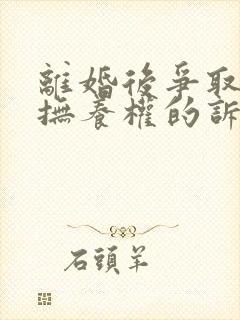 離婚後爭取
撫養權的訴
石頭羊